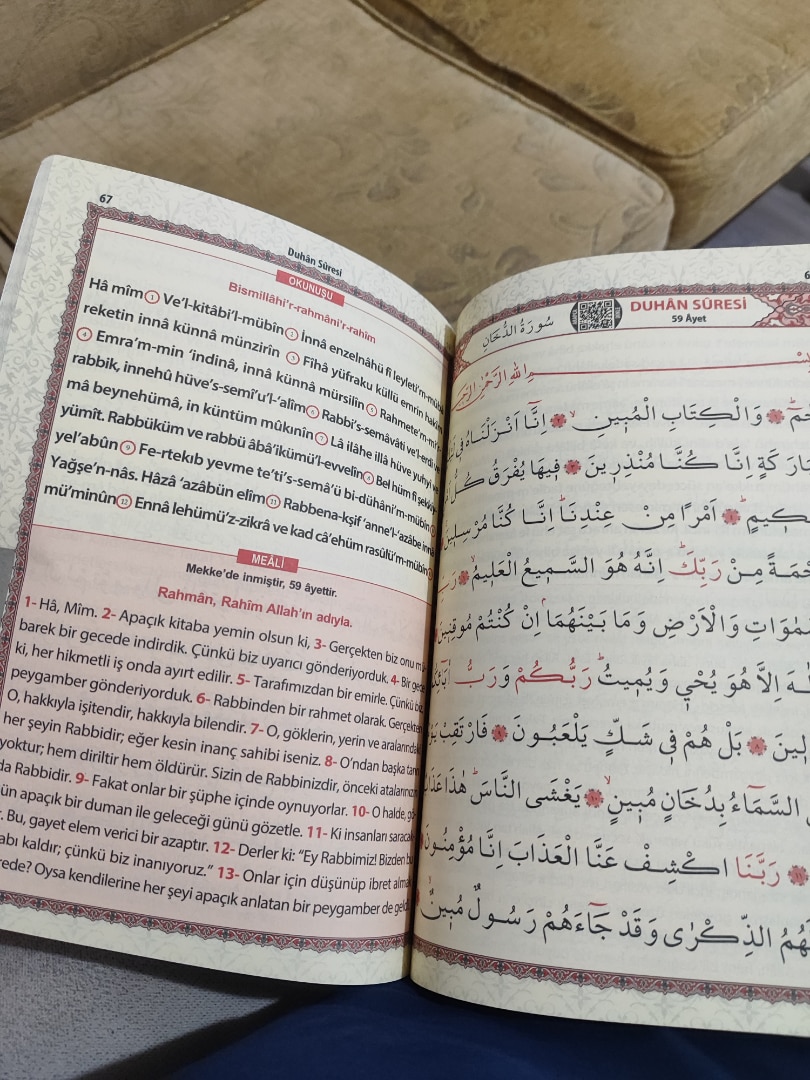 67
Duhân Sûresi
OKUNUŞU
Bismillâhi’r-rahmâni’r-rahîm
Hâ mîm 1 Ve’l-kitâbi’l-mübîn 2 İnnâ enzelnâhü fî leyleti’m-
reketin innâ künnâ münzirîn 3 Fîhâ yüfraku küllü emrin
4 Emra’m-min ‘indinâ, innâ künnâ mürsilîn 5 Rahmete’m-mi’r-
rabbik, innehû hüve’s-semî’u’l-‘alîm 6 Rabbi’s-semâvâti ve’l-erdı ve
mâ beynehümâ, in küntüm mûkınîn 7 Lâ ilâhe illâ hüve yuhyî ve
yümît. Rabbüküm ve rabbü âbâ’ikümü’l-evvelîn 8 Bel hüm fî şekki’y-
yel’abûn 9 Fe-rtekıb yevme te’ti’s-semâ’ü bi-dühâni’m-mübîn
Yağşe’n-nâs. Hâzâ ‘azâbün elîm 11 Rabbena-kşif ‘anne’l-‘azâbe innâ
mü’minûn 12 Ennâ lehümü’z-zikrâ ve kad câ’ehüm rasûlü’m-mübîn
MEÂLİ
Mekke’de inmiştir, 59 âyettir.
Rahmân, Rahîm Allah’ın adıyla.
1- Hâ, Mîm. 2- Apaçık kitaba yemin olsun ki, 3- Gerçekten biz onu
barek bir gecede indirdik. Çünkü biz uyarıcı gönderiyorduk. 4- Bir
ki, her hikmetli iş onda ayırt edilir. 5- Tarafımızdan bir emirle. Çünkü biz
peygamber gönderiyorduk. 6- Rabbinden bir rahmet olarak. Gerçekten
O, hakkıyla işitendir, hakkıyla bilendir. 7- O, göklerin, yerin ve aralarındaki
her şeyin Rabbidir; eğer kesin inanç sahibi iseniz. 8- O’ndan başka
yoktur; hem diriltir hem öldürür. Sizin de Rabbinizdir, önceki atalarınızın
da Rabbidir. 9- Fakat onlar bir şüphe içinde oynuyorlar. 10- O halde,
ün apaçık bir duman ile geleceği günü gözetle. 11- Ki insanları
. Bu, gayet elem verici bir azaptır. 12- Derler ki: “Ey Rabbimiz! Bizden
abı kaldır; çünkü biz inanıyoruz.” 13- Onlar için düşünüp ibret
rede? Oysa kendilerine her şeyi apaçık anlatan bir peygamber de
6
سُورَةُ الدُّخَانِ
DUHÂN SÛRESİ
59 Âyet
مِ اللهِ الرَّحْمٰنِ الرَّحِيمِ
حٰمٓ وَالْكِتَابِ الْمُبٖينِ اِنَّٓا اَنْزَلْنَاهُ فٖي
بَارَكَةٍ اِنَّا كُنَّا مُنْذِرٖينَ فٖيهَا يُفْرَقُ كُلُّ
حَكٖيمٍ اَمْرًا مِنْ عِنْدِنَا اِنَّا كُنَّا مُرْسِلٖينَ
حْمَةً مِنْ رَبِّكَ اِنَّهُ هُوَ السَّمٖيعُ الْعَلٖيمُ رَبِّ
مٰوَاتِ وَالْاَرْضِ وَمَا بَيْنَهُمَا اِنْ كُنْتُمْ مُوقِنٖينَ
لٰهَ اِلَّا هُوَ يُحْيٖي وَيُمٖيتُ رَبُّكُمْ وَرَبُّ
لٖينَ بَلْ هُمْ فٖي شَكٍّ يَلْعَبُونَ فَارْتَقِبْ
السَّمَٓاءُ بِدُخَانٍ مُبٖينٍ يَغْشَى النَّاسَ هٰذَا
رَبَّنَا اكْشِفْ عَنَّا الْعَذَابَ اِنَّا مُؤْمِنُونَ
لَهُمُ الذِّكْرٰى وَقَدْ جَٓاءَهُمْ رَسُولٌ مُبٖينٌ